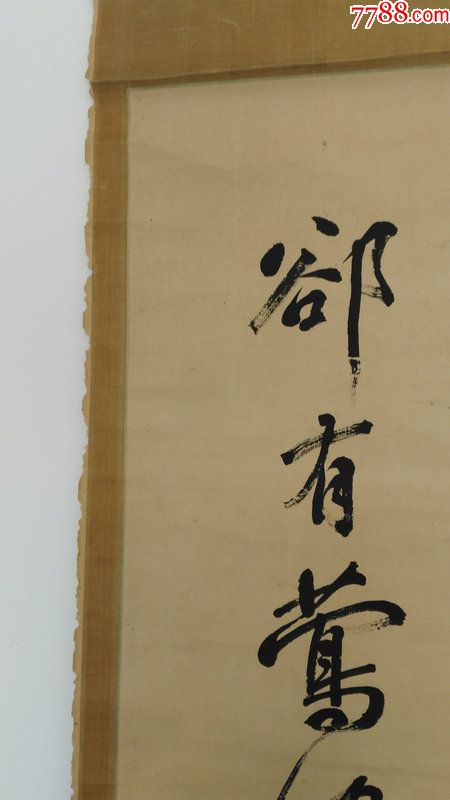 7788.com
郤有鶯